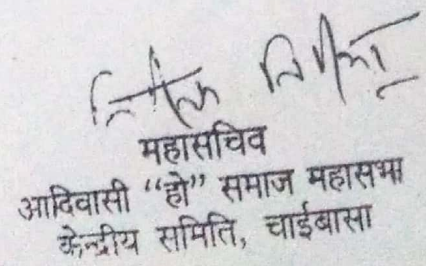 महासचिव
आदिवासी “हो” समाज महासभा
केन्द्रीय समिति, चाईबासा